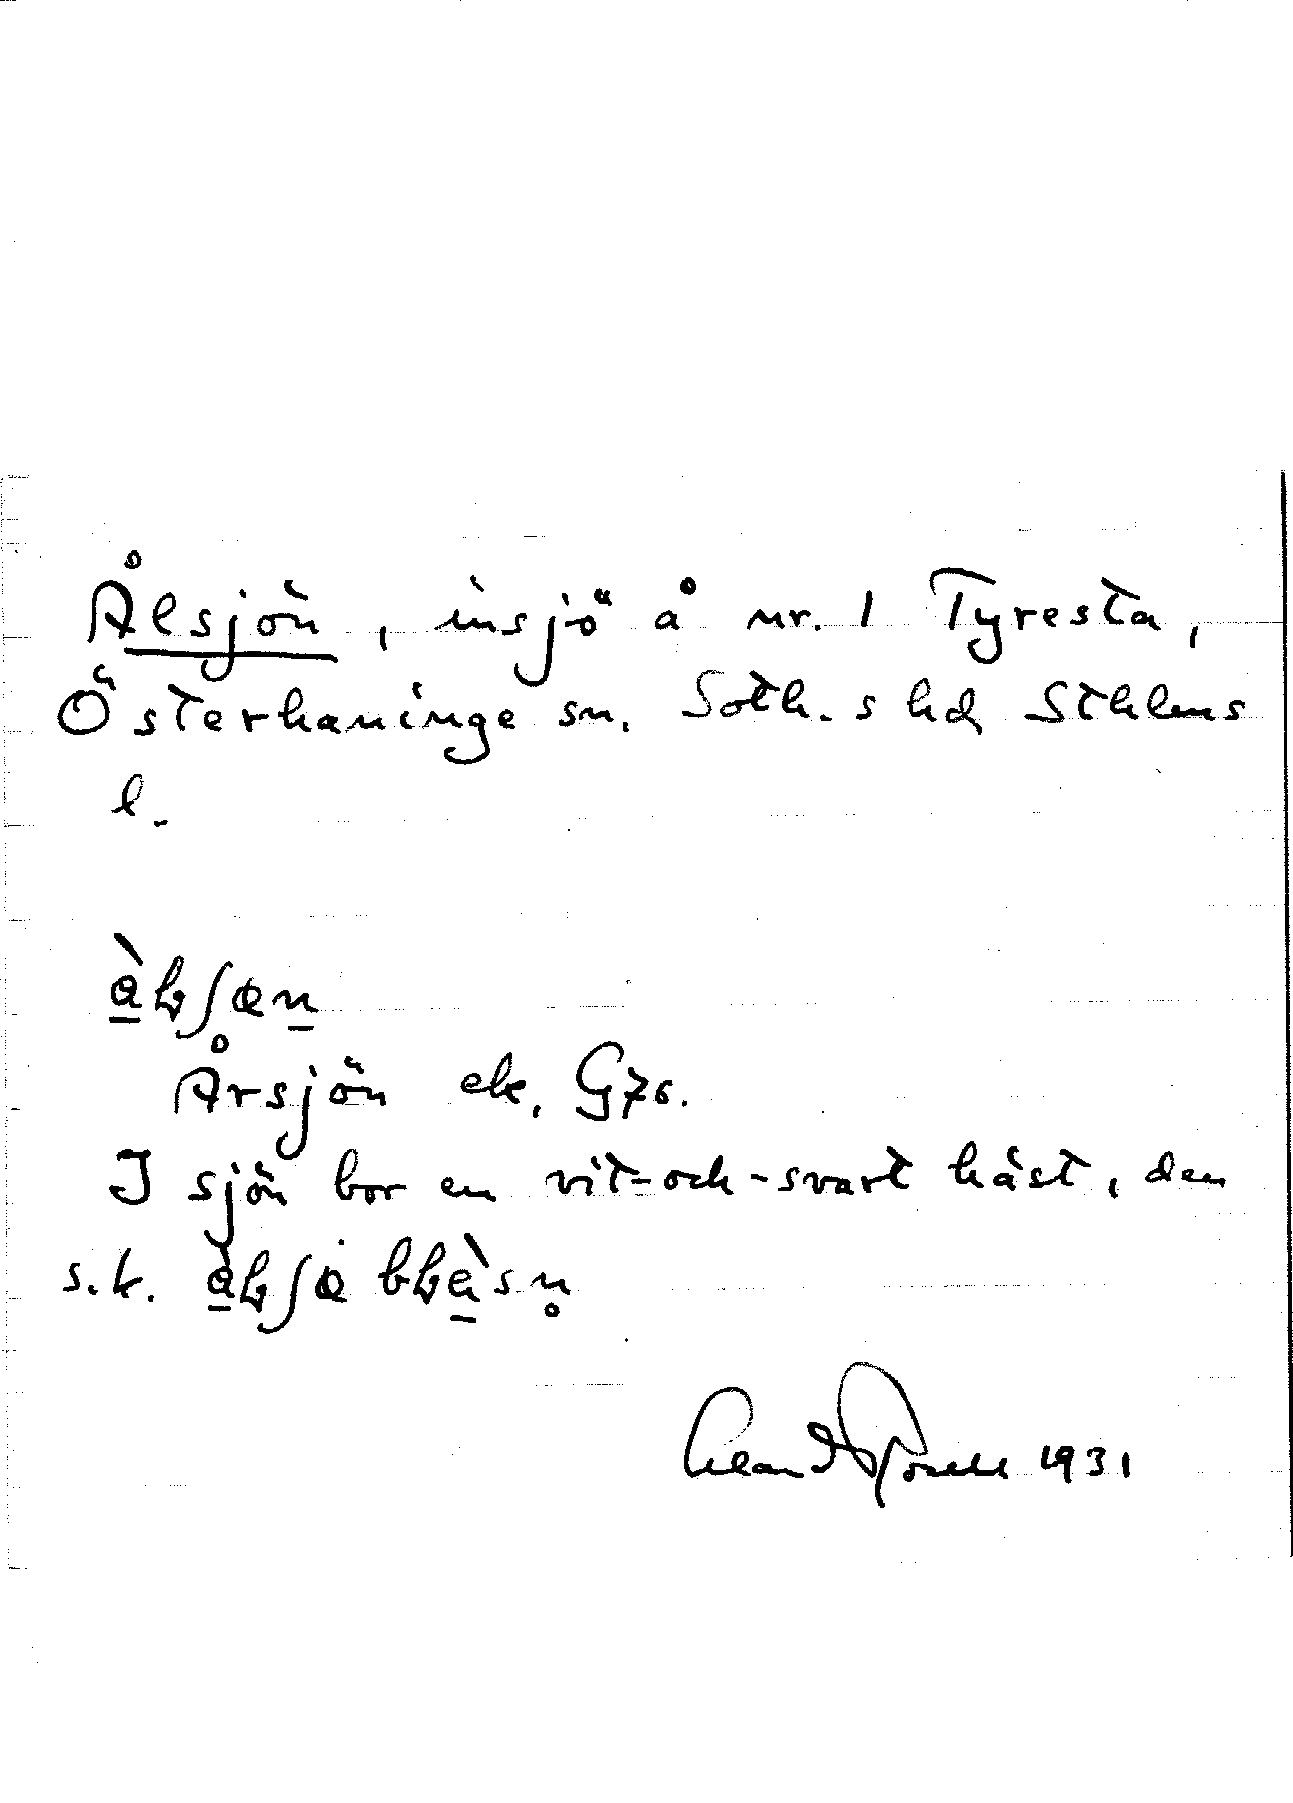 Ålsjön, insjö å nr. 1 Tyresta,
Österhaninge sn. Soth. s hd Sthlms
l.
Årsjön ek. G76.
I sjön bor en vit-och-svart häst, den
s.k.
1931